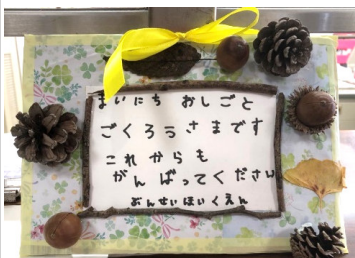 まいにち おしごと
ごくろうさまです
これからも
がんばってください
ぶんせいほいくえん